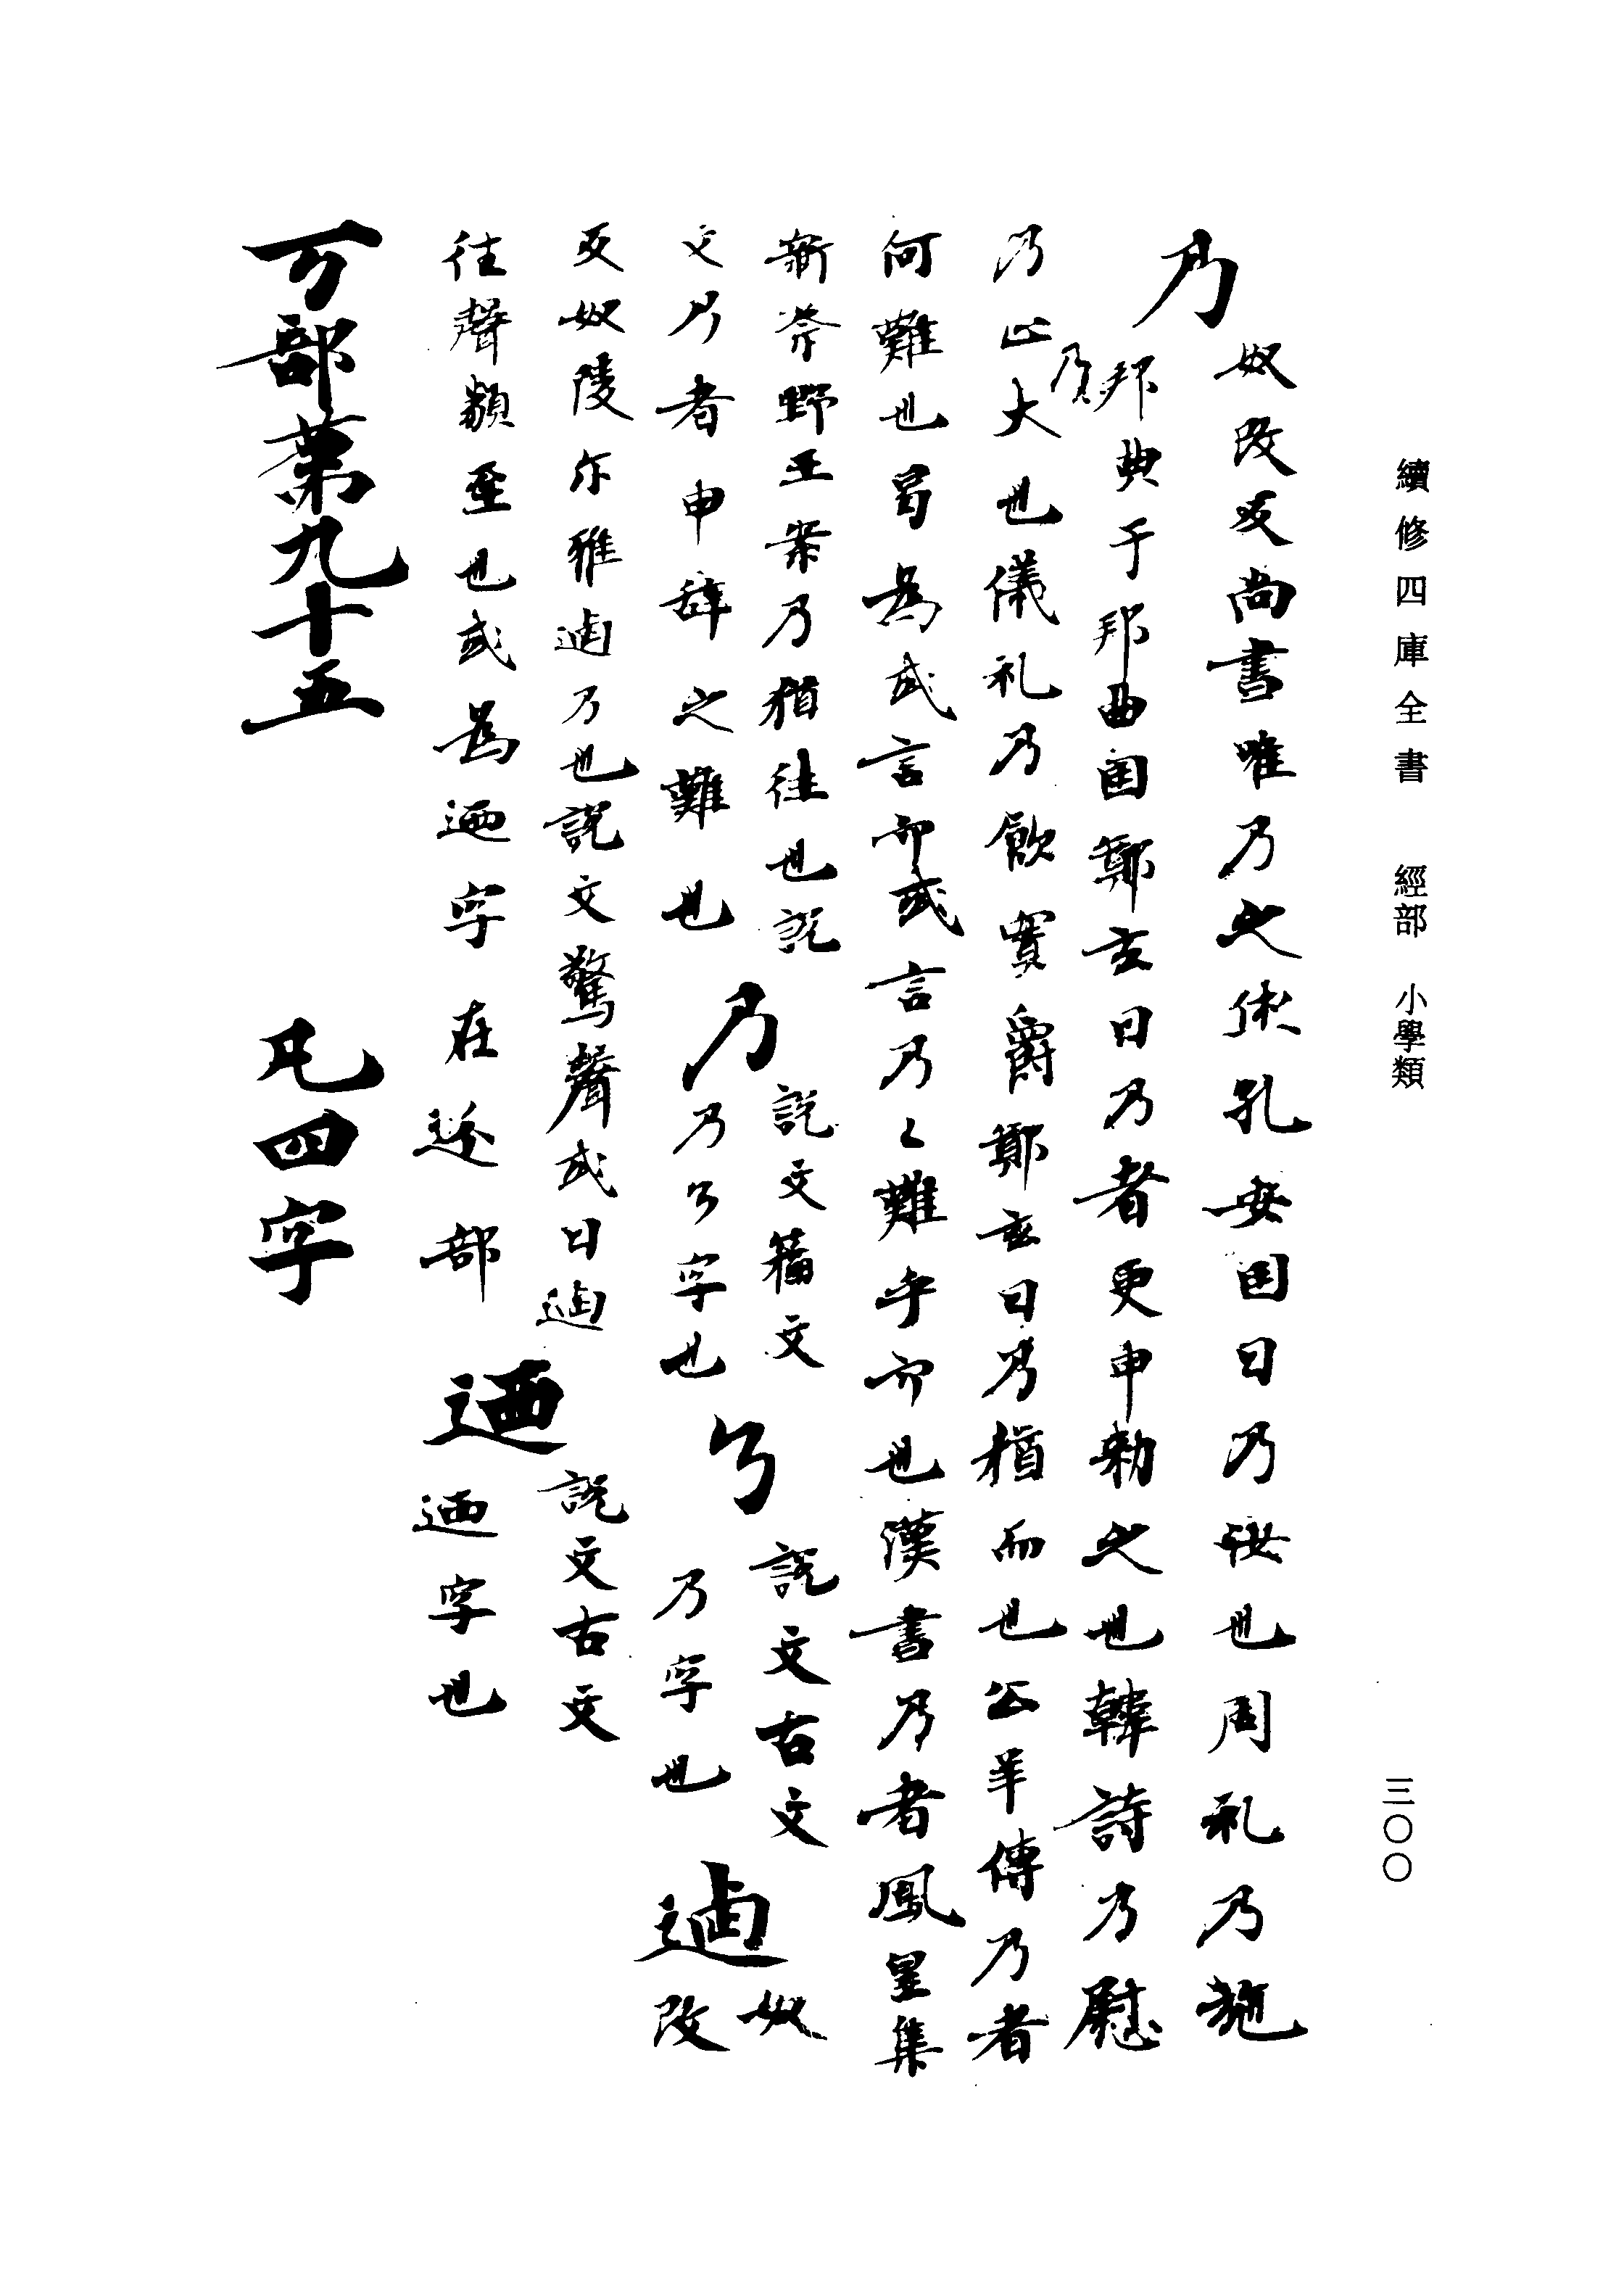 續修四庫全書　經部　小學類
三〇〇
乃
奴改反尚書唯乃之休孔安国曰乃汝也周礼乃施
邦典于邦曲国鄭玄曰乃者更申勑之也韓詩乃慰
乃
乃止大也儀礼乃飲實爵鄭玄曰乃猶而也公羊傳乃者
何難也曷為或言而或言乃〻難乎而也漢書乃者鳳皇集
新祭野王案乃猶往也説
文乃者申辞之難也
乃
説文籀文
乃乃字也
㇋
説文古文
乃字也
逌
奴改
反奴陵尓雅逌乃也説文驚聲或曰逌
往聲類至也或為迺字在辵部
迺
説文古文
迺字也
丂部苐九十五　凡四字